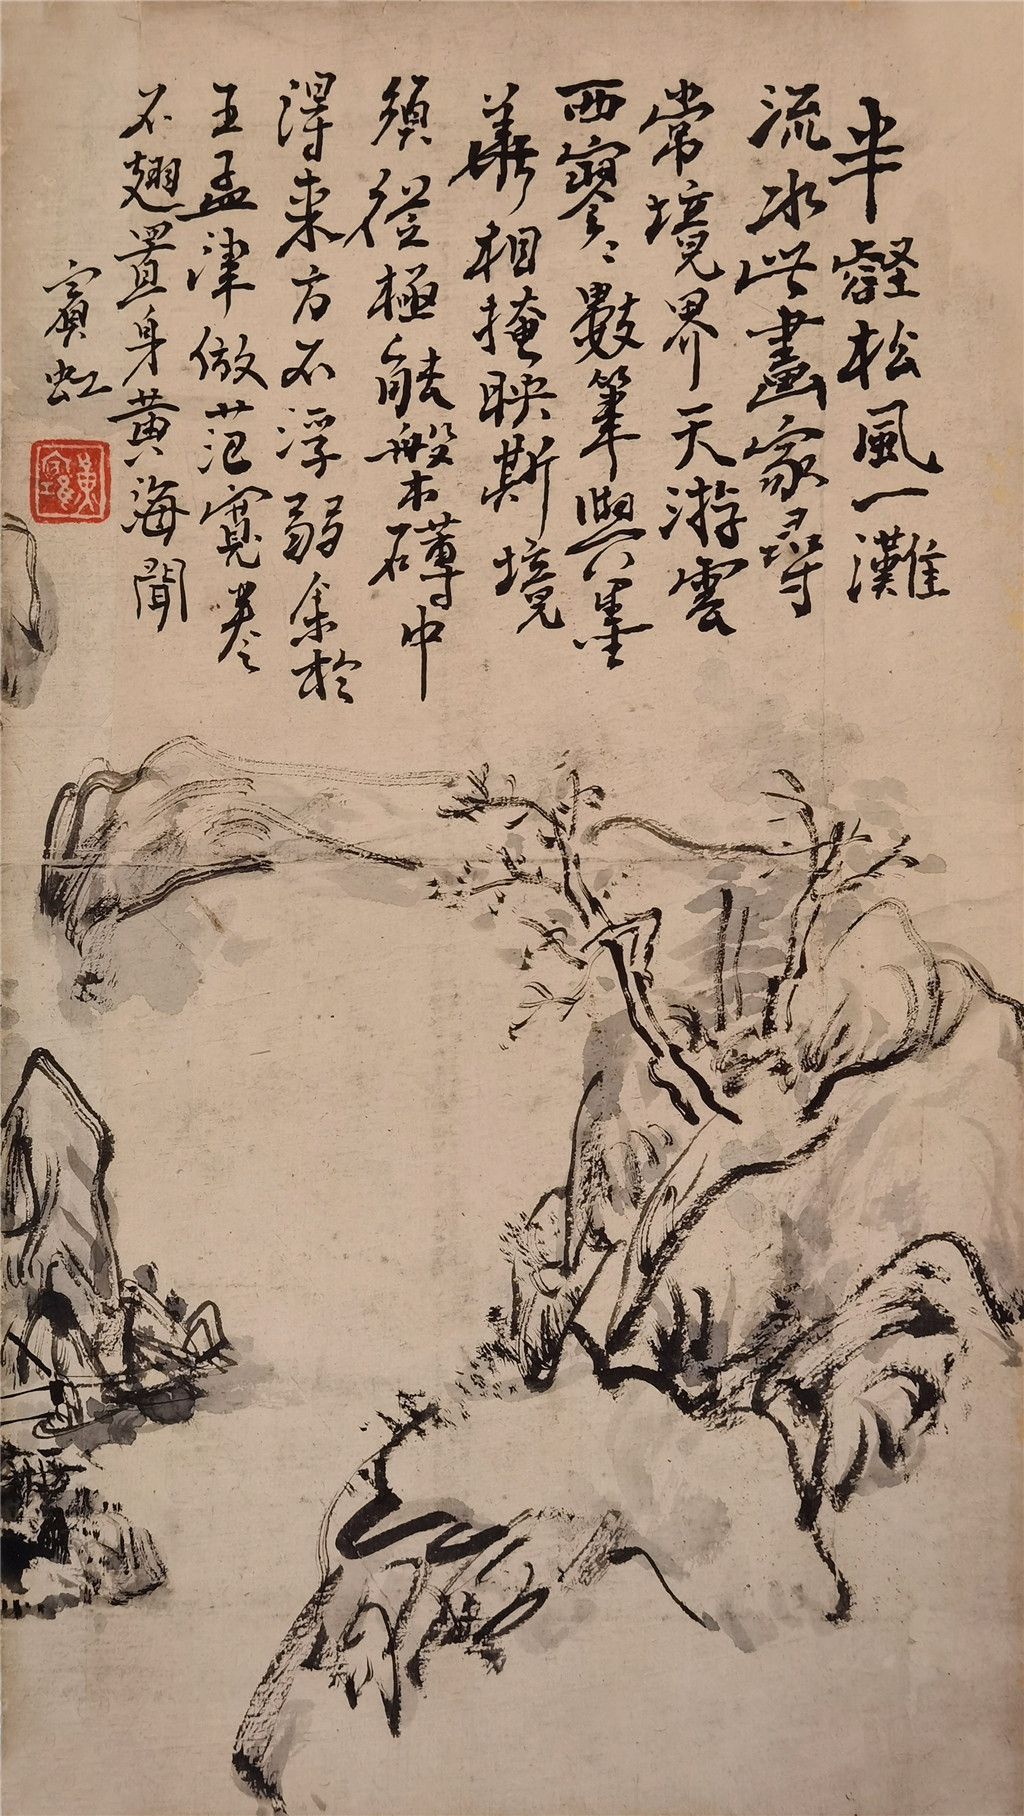 半壑松風一灘
流水此畫家尋
常境界天游雲
西寥寥數筆與墨
華相掩映斯境
須從極能般礴中
得來方不浮弱余於
王孟津倣范寬卷
不翅置身黃海聞
賓虹
黃賓虹